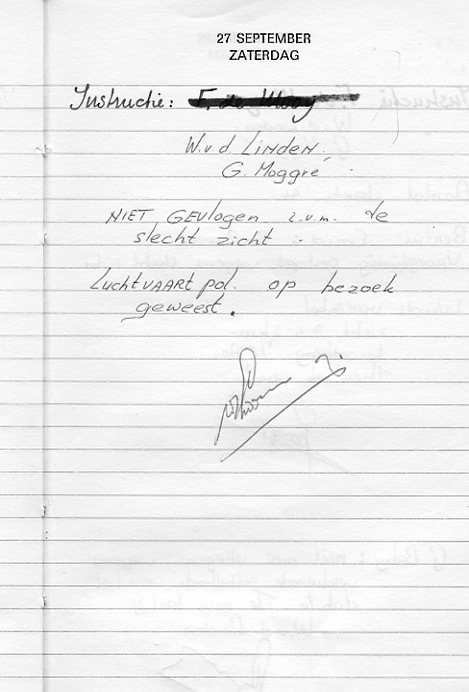 27 SEPTEMBER
ZATERDAG
Instructie: F. de Mooy
W.v.d. LINDEN,
G. Moggré
NIET GEVLOGEN i.v.m. de
slecht zicht.
LUCHTVAART pol. op bezoek
geweest.